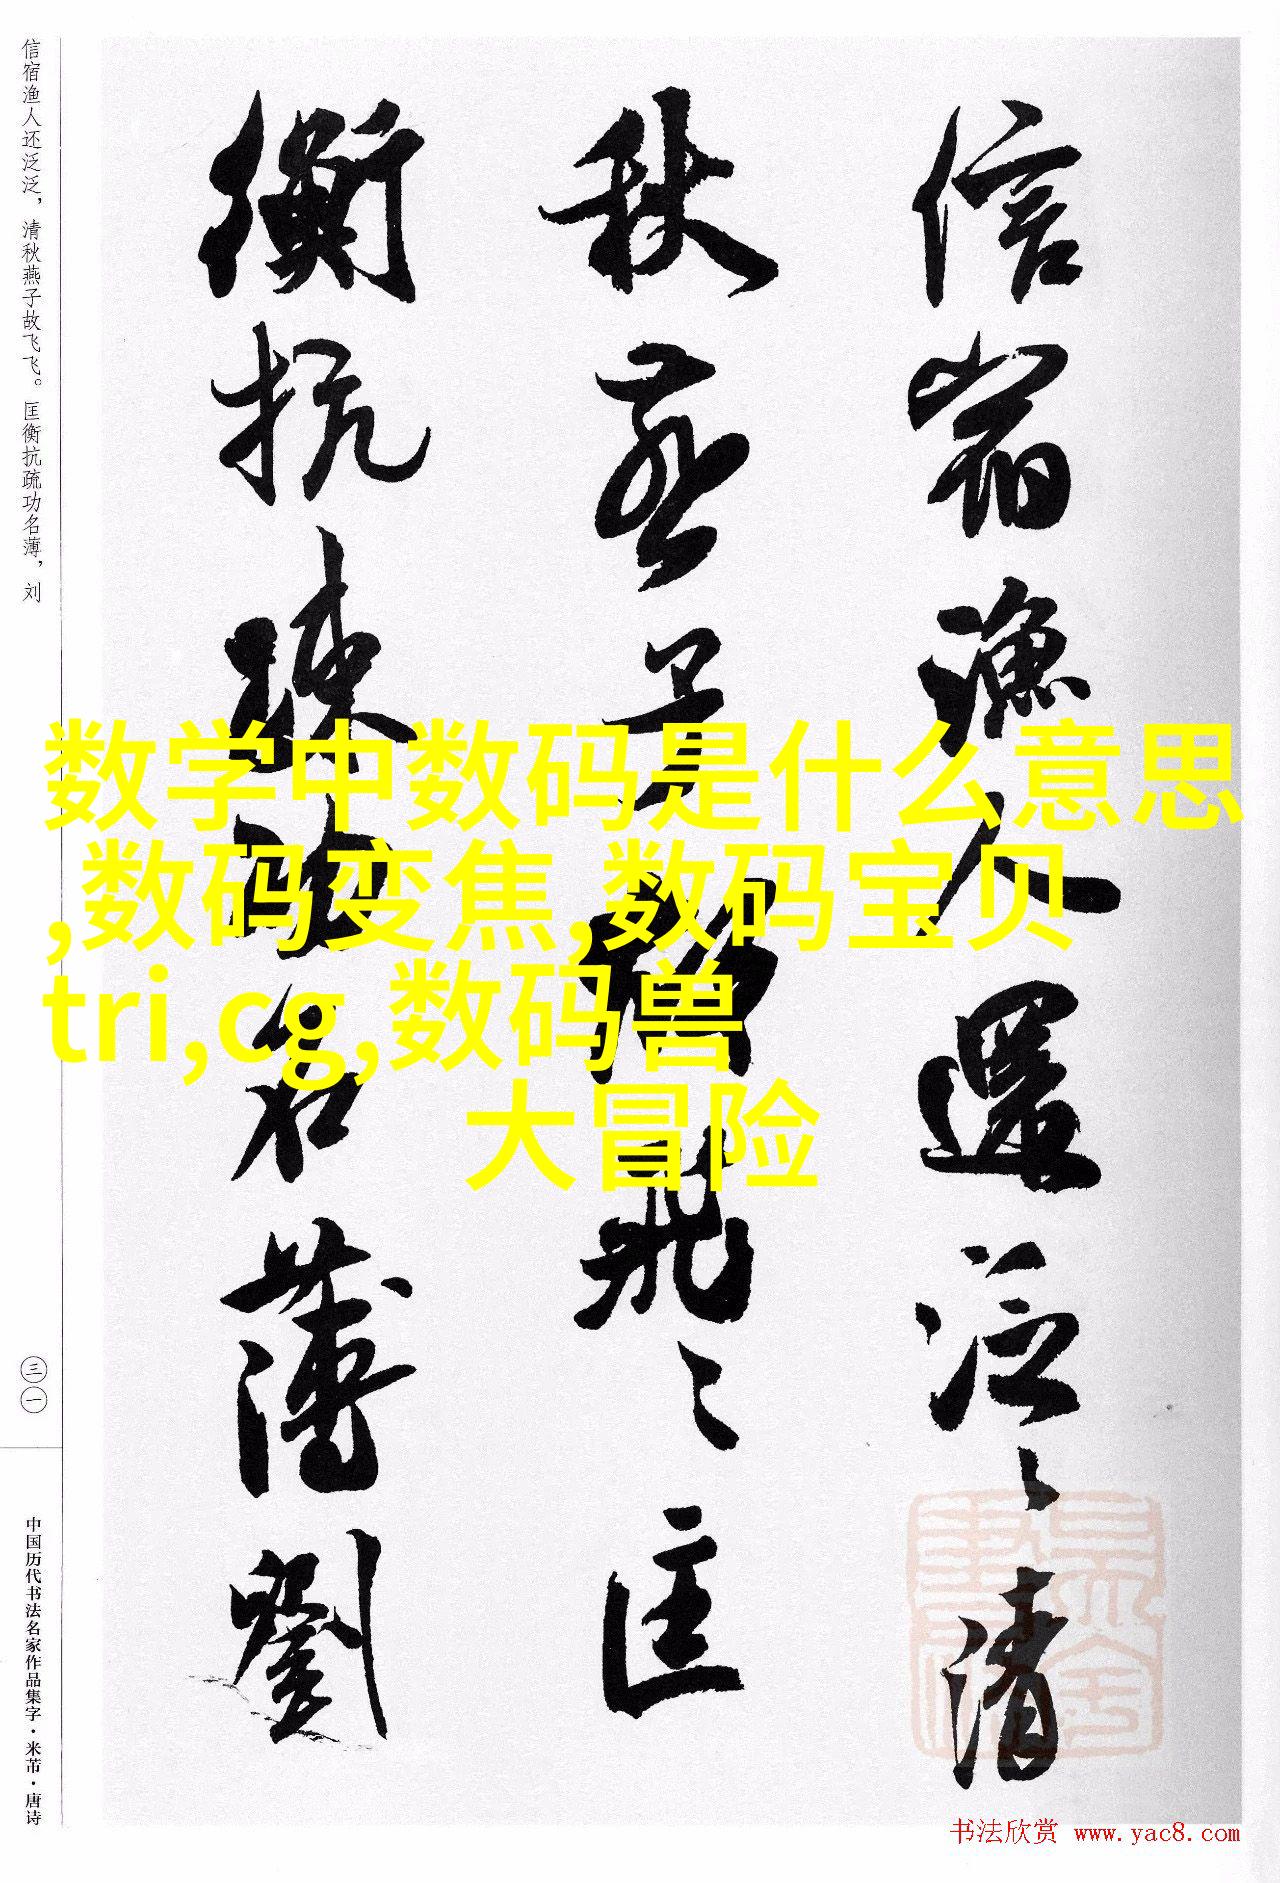 信宿渔人还泛泛，清秋燕子故飞飞。匡衡抗疏功名薄，刘
三一
中国历代书法名家作品集字·米芾·唐诗
信宿漁人還泛〻清
秋燕子故飛〻匡
衡抗疏功名薄劉
数学中数码是什么意思
,数码变焦,数码宝贝
tri,cg,数码兽
大冒险
书法欣赏 www.yac8.com